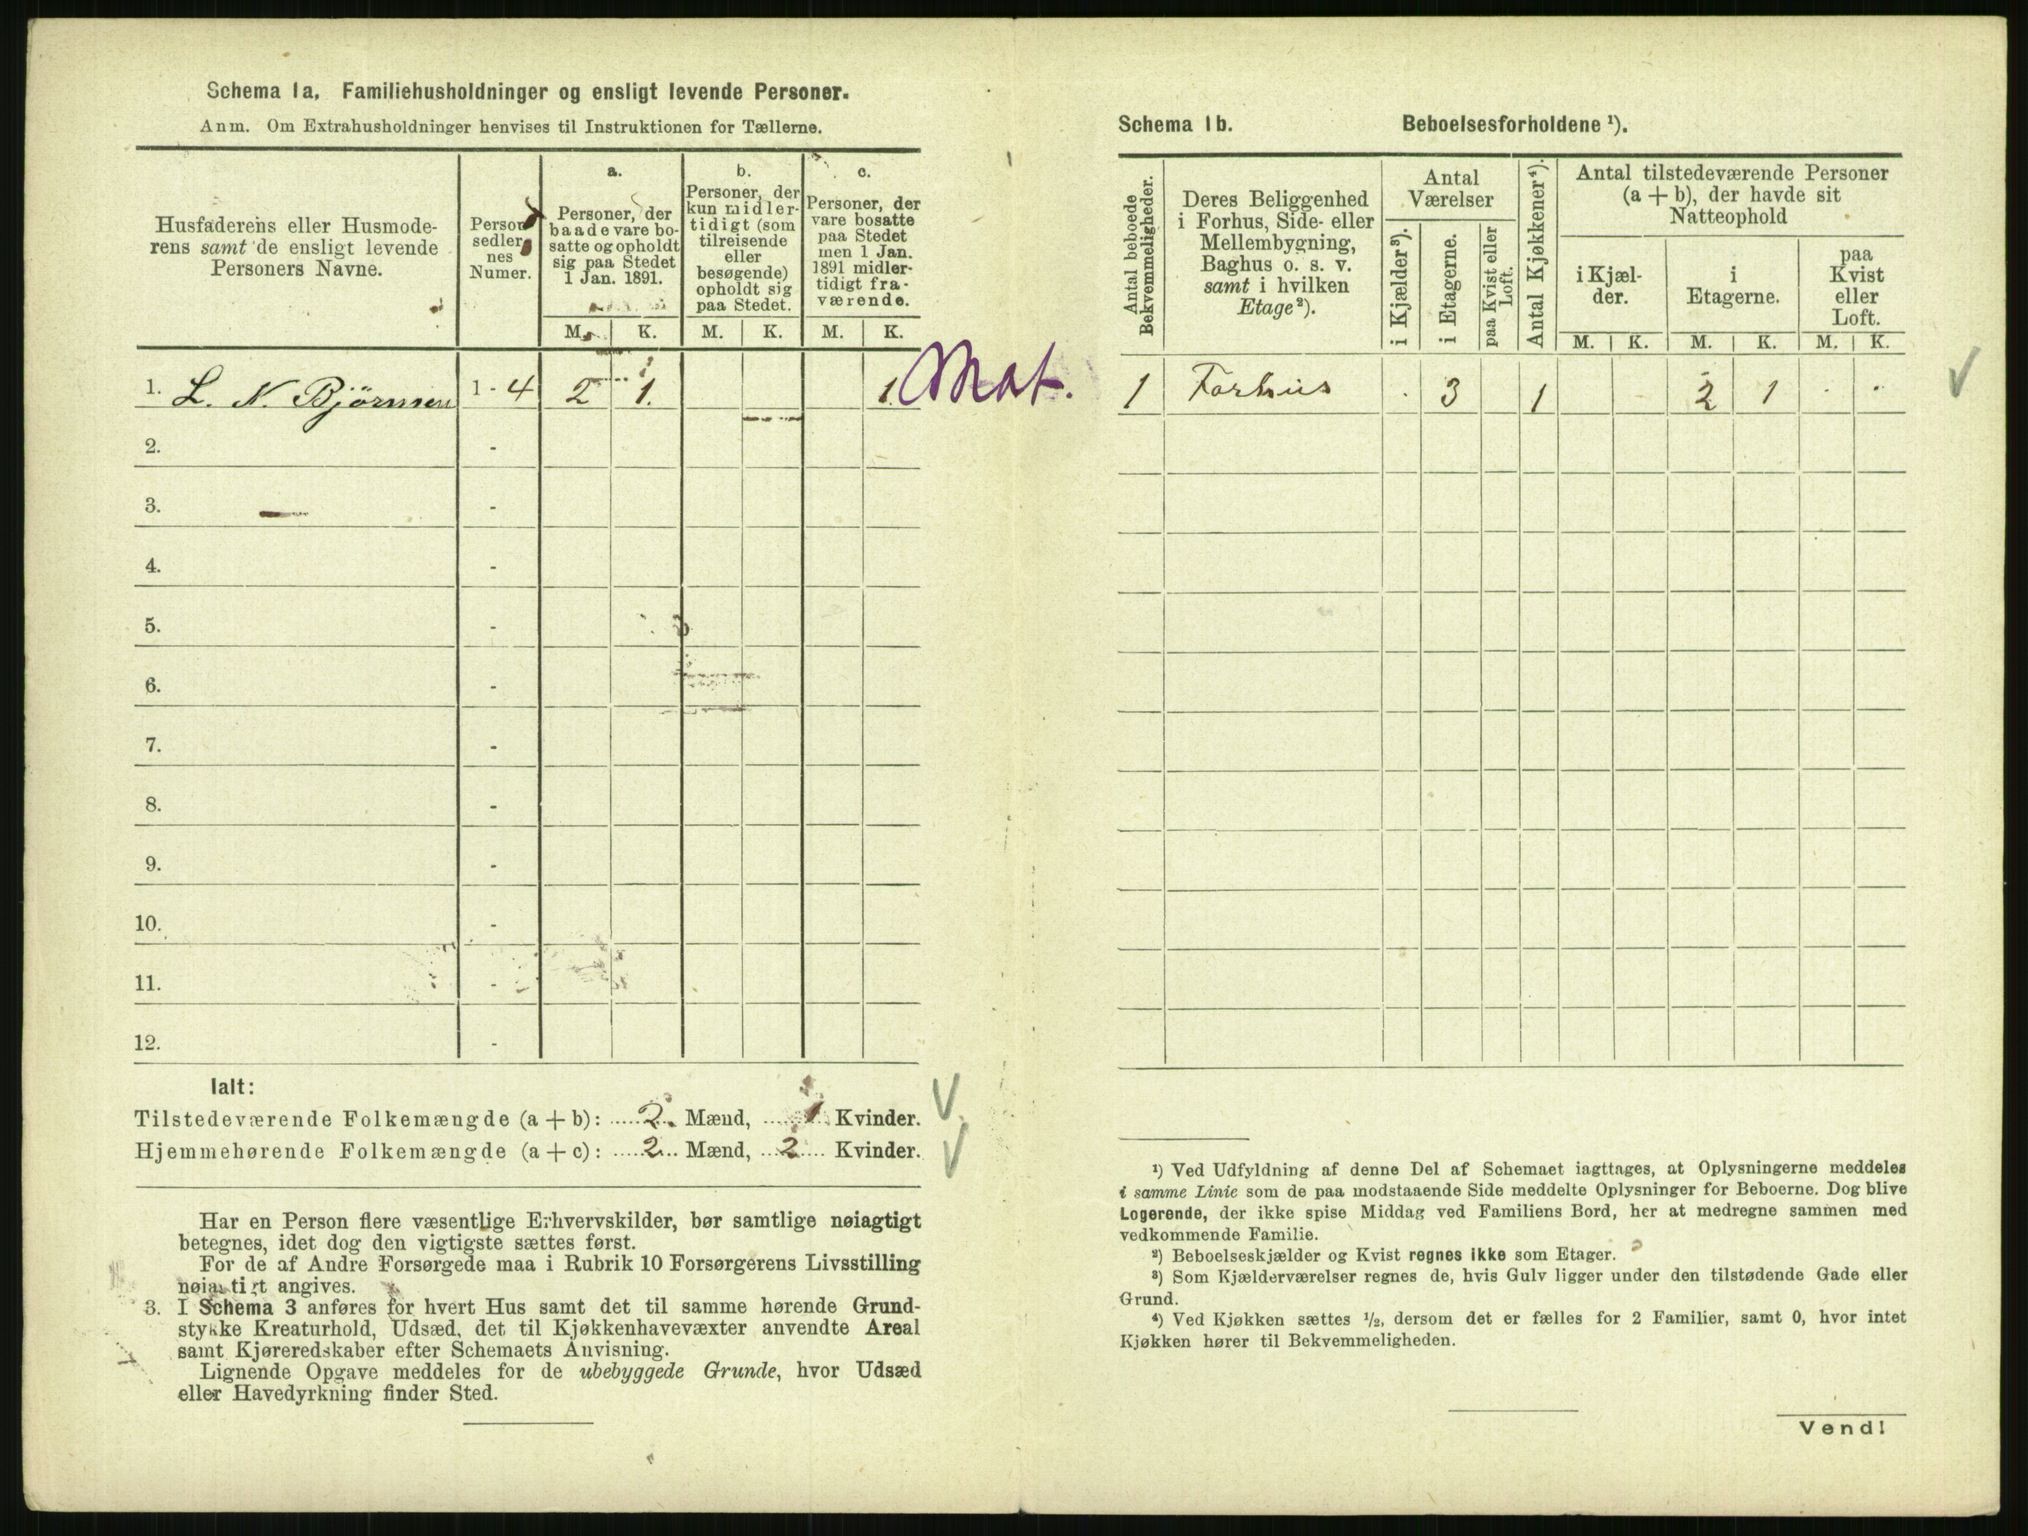 Schema 1a. Familiehusholdninger og ensligt levende Personer.
Anm. Om Extrahusholdninger henvises til Instruktionen for Tællerne.
Husfaderens eller Husmode-
rens samt de ensligt levende
Personers Navne.
Person
sedler
nes
Numer.
a.
Personer, der
baade vare bo-
satte og opholdt
sig paa Stedet
1 Jan. 1891.
b.
Personer, der
kun midler-
tidigt (som
tilreisende
eller
besøgende)
opholdt sig
paa Stedet.
c.
Personer, der
vare bosatte
paa Stedet
men 1 Jan.
1891 midler-
tidigt fra-
værende.
M. K. M. K. M. K.
1. L. N. Björnsen 1 - 4 2 1. 1. Mat.
2. -
3. -
4. -
5. -
6. -
7. -
8. -
9. -
10. -
11. -
12. -
Ialt:
Tilstedeværende Folkemængde (a + b): 2. Mænd, 1 Kvinder.
Hjemmehørende Folkemængde (a + c): 2 Mænd, 2 Kvinder.
Har en Person flere væsentlige Erhvervskilder, bør samtlige nøiagtigt
betegnes, idet dog den vigtigste sættes først.
For de af Andre Forsørgede maa i Rubrik 10 Forsørgerens Livsstilling
nøiagtigt angives.
3. I Schema 3 anføres for hvert Hus samt det til samme hørende Grund-
stykke Kreaturhold, Udsæd, det til Kjøkkenhavevæxter anvendte Areal
samt Kjøreredskaber efter Schemaets Anvisning.
Lignende Opgave meddeles for de ubebyggede Grunde, hvor Udsæd
eller Havedyrkning finder Sted.
Schema 1b. Beboelsesforholdene ¹).
Antal beboede
Bekvemmeligheder.
Deres Beliggenhed
i Forhus, Side- eller
Mellembygning,
Baghus o. s. v.
samt i hvilken
Etage²).
Antal
Værelser
i Kjælder³).
i Etagerne.
paa Kvist eller
Loft.
Antal Kjøkkener⁴).
Antal tilstedeværende Personer
(a + b), der havde sit
Natteophold
i Kjæl-
der.
i
Etagerne.
paa
Kvist
eller
Loft.
M. K. M. K. M. K.
1 Forhus . 3 1 2 1 . .
¹) Ved Udfyldning af denne Del af Schemaet iagttages, at Oplysningerne meddeles
i samme Linie som de paa modstaaende Side meddelte Oplysninger for Beboerne. Dog blive
Logerende, der ikke spise Middag ved Familiens Bord, her at medregne sammen med
vedkommende Familie.
²) Beboelseskjælder og Kvist regnes ikke som Etager.
³) Som Kjælderværelser regnes de, hvis Gulv ligger under den tilstødende Gade eller
Grund.
⁴) Ved Kjøkken sættes ½, dersom det er fælles for 2 Familier, samt 0, hvor intet
Kjøkken hører til Bekvemmeligheden.
Vend!